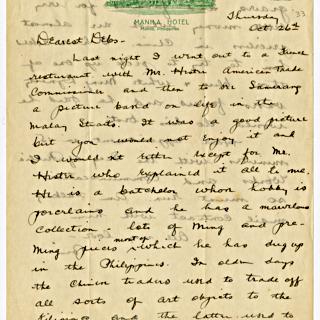 MANILA HOTEL
Manila, Philippines
33
Thursday
Oct. 26th
Dearest Debs-
Last night I went out to a
restaurant with Mr. American Trade
Commissioner and then to see Samarang
a picture based on life in the
Malay Straits. It was a good picture
but you would not enjoy it and
I wouldn't either except for Mr.
who explained it all to me.
He is a batchelor whose hobby is
porcelains and he has a marvelous
collection lots of Ming and pre-
Ming pieces most of which he has dug up
in the Philippines. In olden days
the Chinese traders used to trade off
all sorts of art objects to the
Filipinos and the latter used to